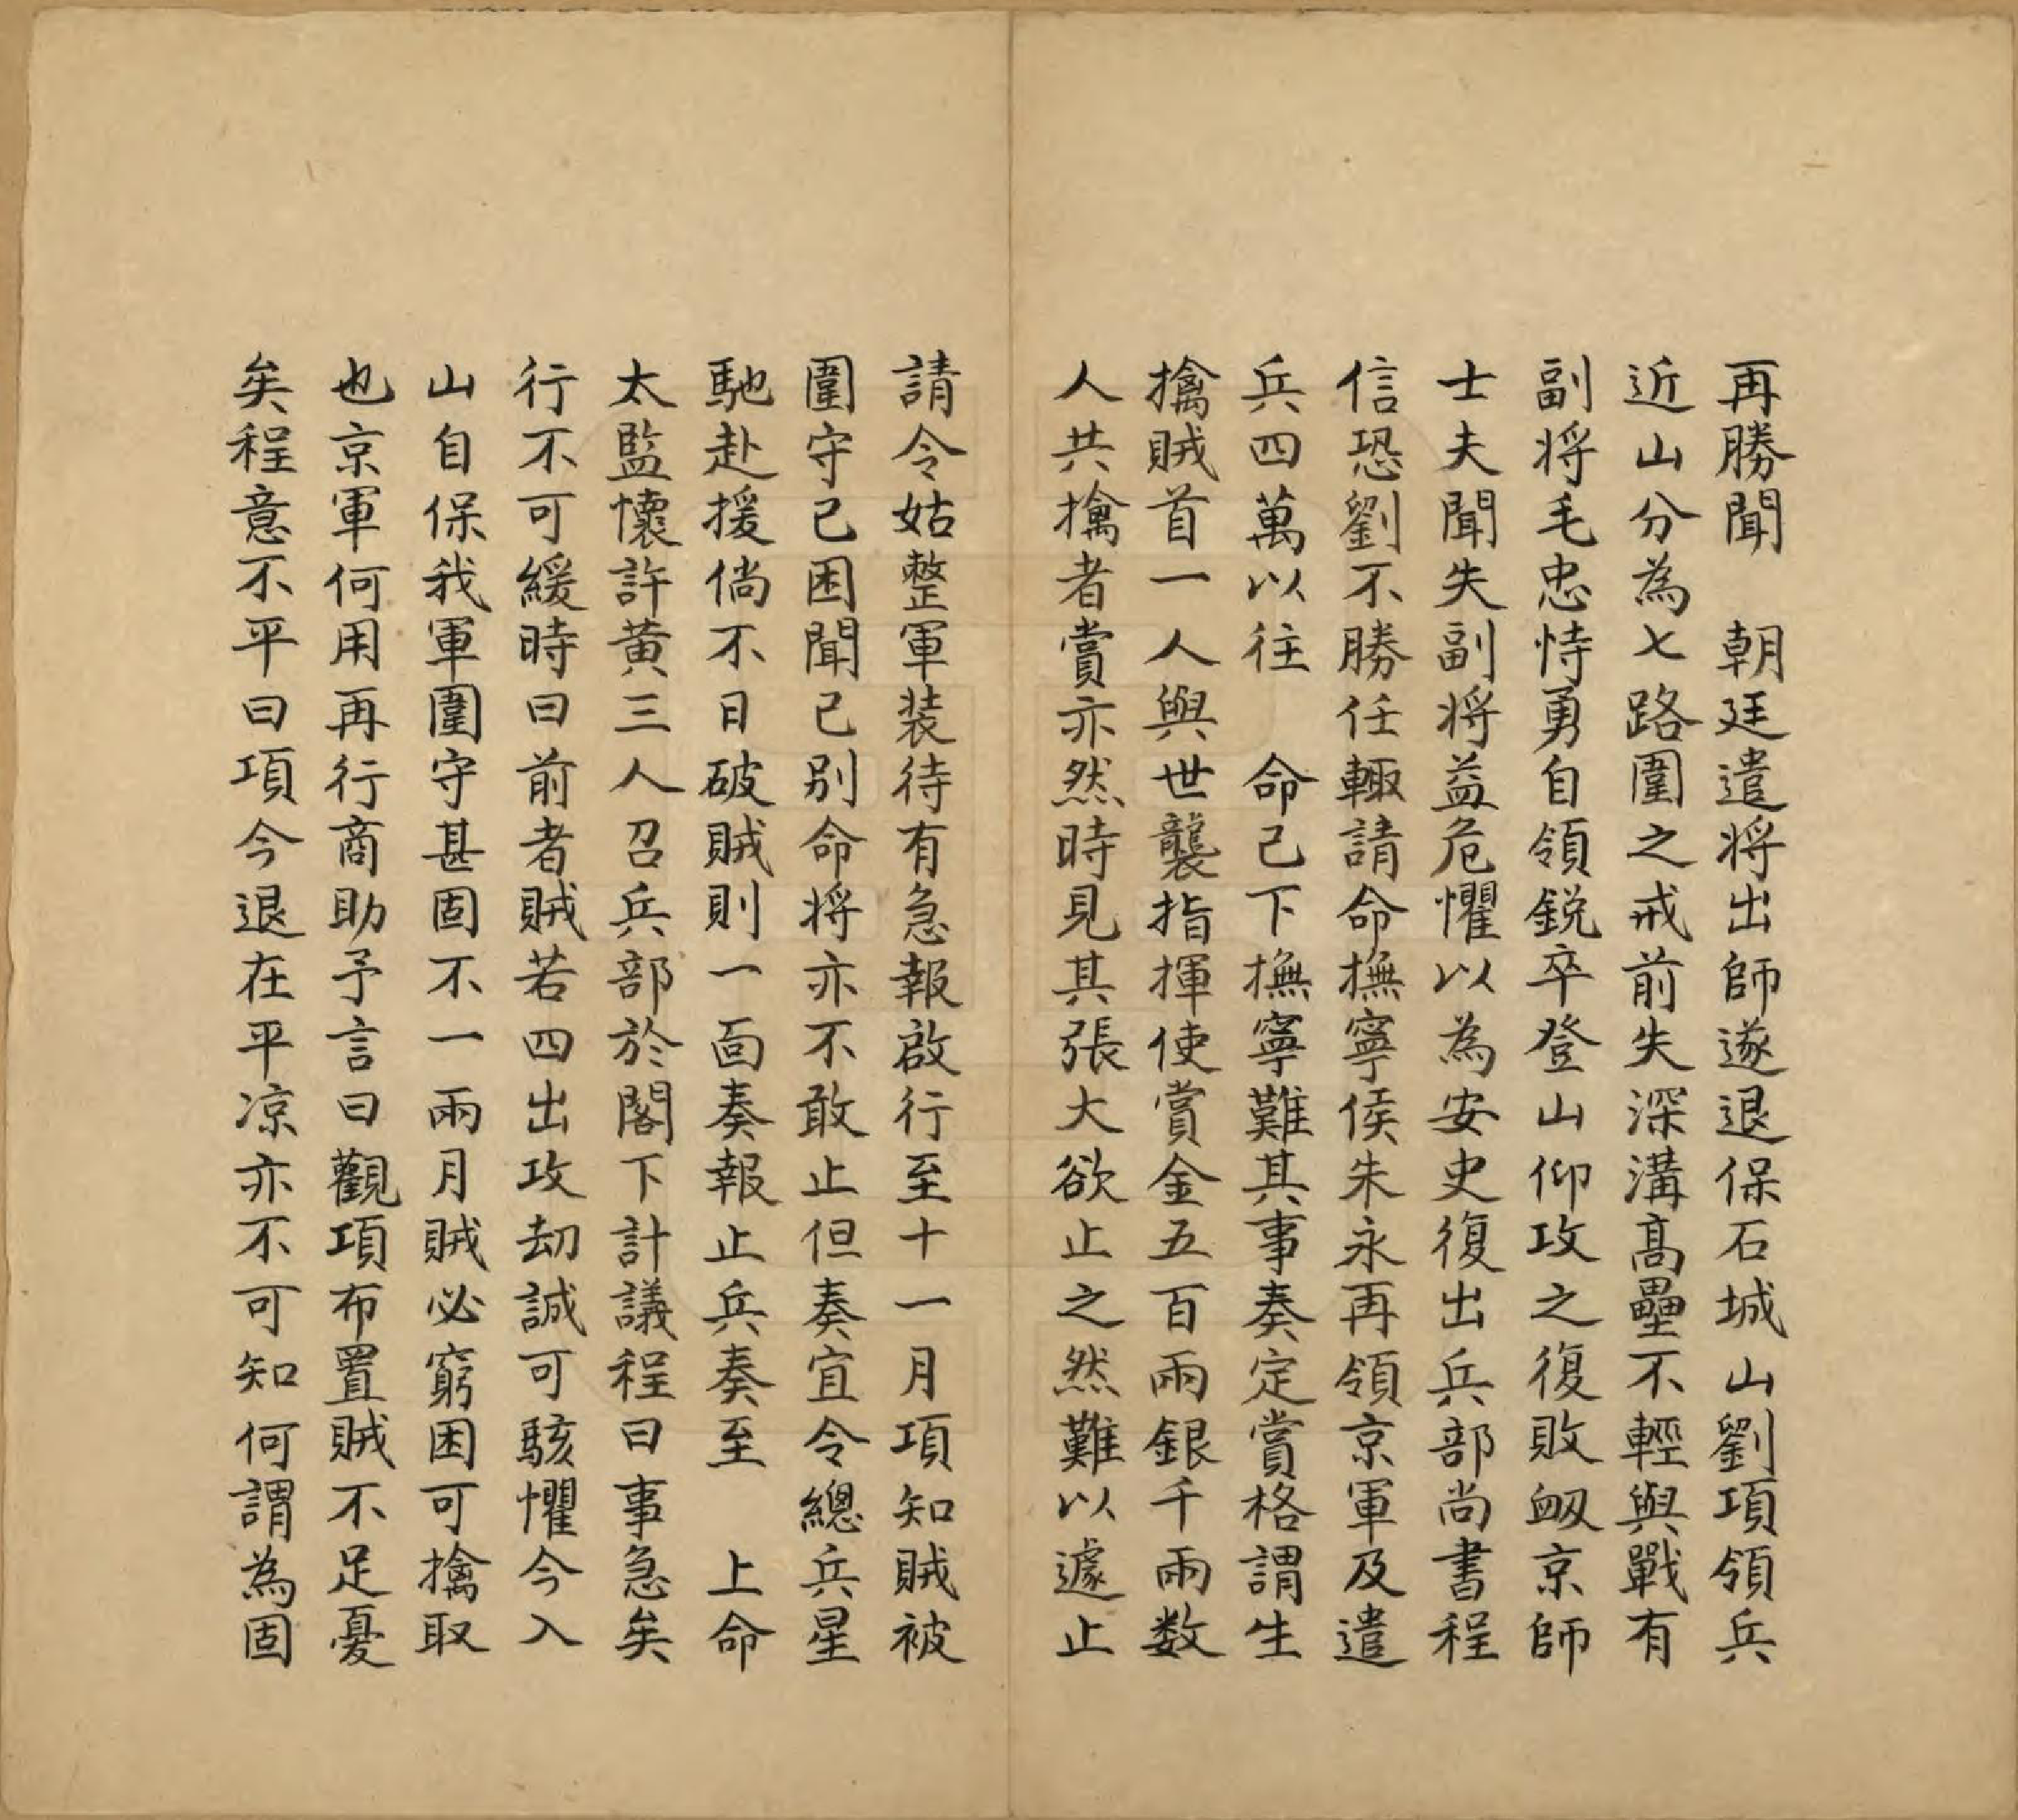 再勝聞　朝廷遣将出師遂退保石城山劉項領兵
近山分為七路圍之戒前失深溝髙壘不輕與戰有
副将毛忠恃勇自領鋭卒登山仰攻之復敗衂京師
士夫聞失副将益危懼以為安史復出兵部尚書程
信恐劉不勝任輙請命撫寧侯朱永再領京軍及遣
兵四萬以往　命已下撫寧難其事奏定賞格謂生
擒賊首一人與世襲指揮使賞金五百兩銀千兩数
人共擒者賞亦然時見其張大欲止之然難以遽止
請令姑整軍装待有急報啟行至十一月項知賊被
圍守已困聞已别命将亦不敢止但奏宜令總兵星
馳赴援倘不日破賊則一面奏報止兵奏至　上命
太監懷許黄三人召兵部於閣下計議程曰事急矣
行不可緩時曰前者賊若四出攻劫誠可駭懼今入
山自保我軍圍守甚固不一兩月賊必窮困可擒取
也京軍何用再行商助予言曰觀項布置賊不足憂
矣程意不平曰項今退在平凉亦不可知何謂為固